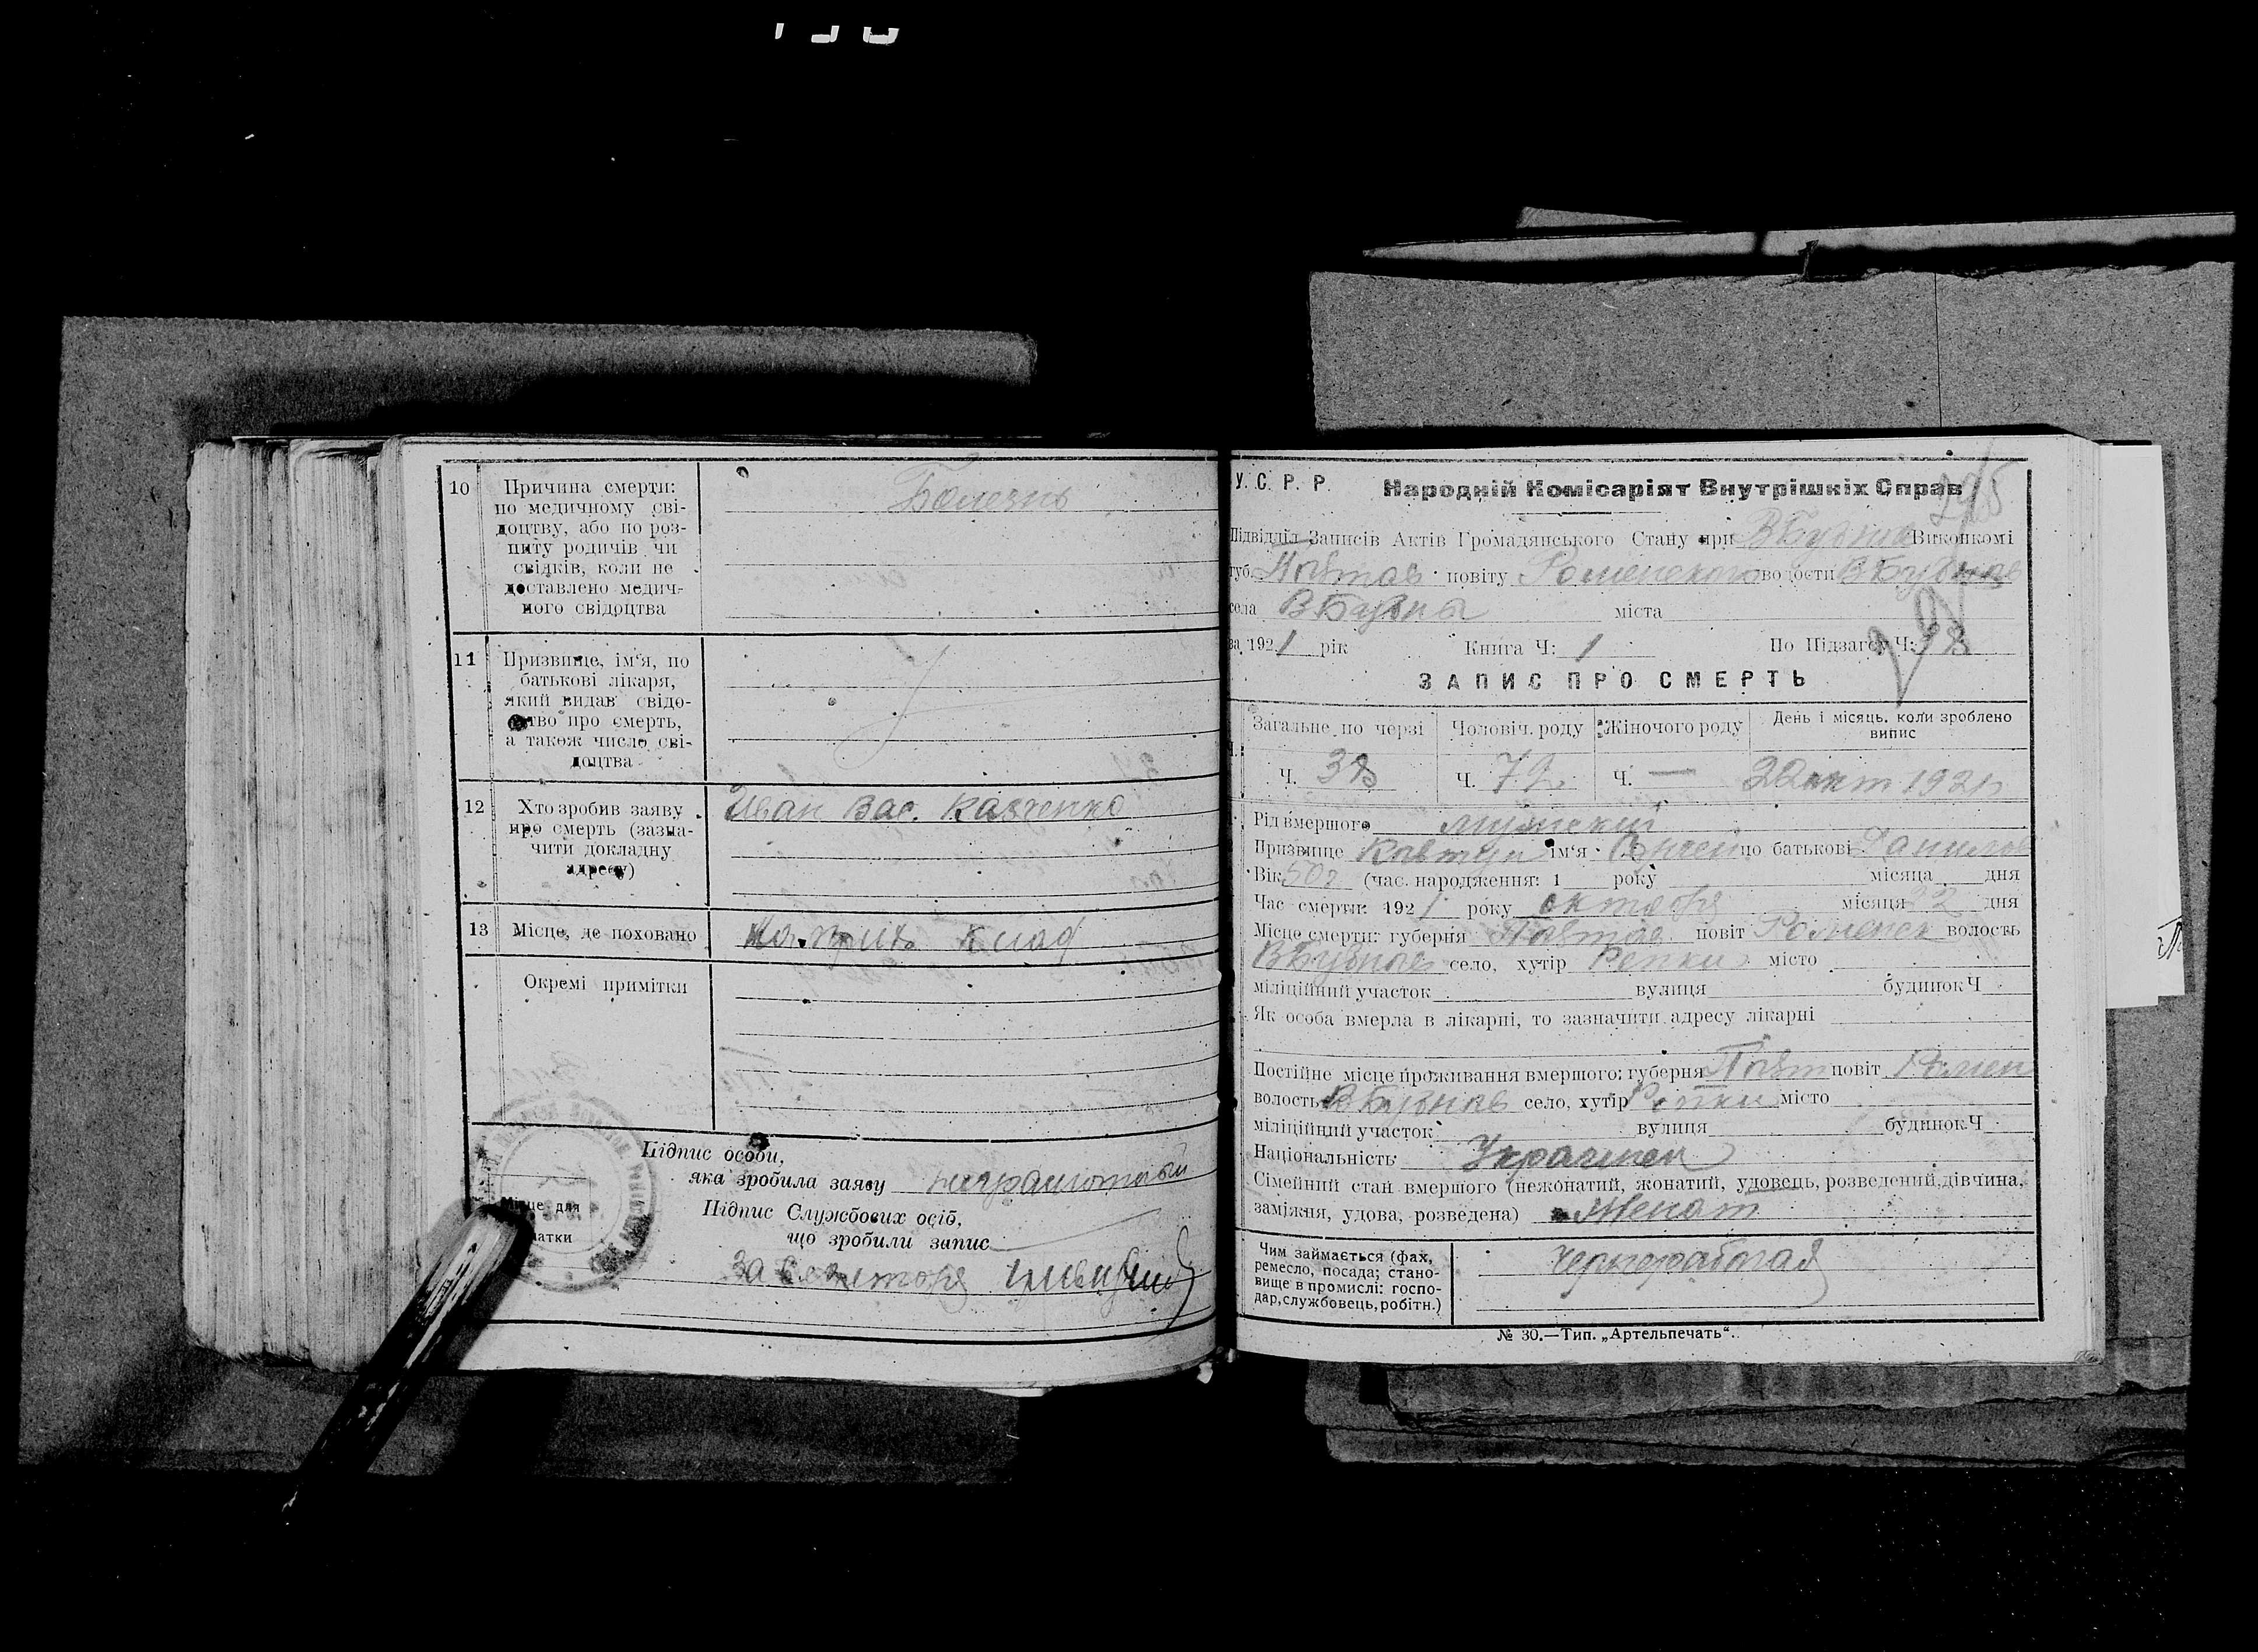 10 Причина смерти:
по медичному сві-
доцтву, або по роз-
питу родичів чи
свідків, коли не
доставлено медич-
ного свідоцтва
Болезнь
11 Призвище, ім'я, по
батькові лікаря,
який видав свідо-
цтво про смерть,
а також число сві-
доцтва
12 Хто зробив заяву
про смерть (зазна-
чити докладну
адресу)
Иван Вас. Кавченко
13 Місце, де поховано
Окремі примітки
Підпис особи,
яка зробила заяву неграмотный
Підпис Службових осіб,
що зробили запис
За
Місце для
печатки
295
У. С. Р. Р. Народній Комісаріят Внутрішніх Справ
Підвідділ Записів Актів Громадянського Стану при В Бубнов Виконкомі
губ. Полтав повіту Роменского волости В Бубнов
села В Бубны міста
за 1921 рік Книга Ч: 1 По Підзагсу Ч:
ЗАПИС ПРО СМЕРТЬ
Загальне по черзі Чоловіч. роду Жіночого роду День і місяць, коли зроблено
випис
Ч. Ч. Ч. — окт 1921
Рід вмершого мужской
Призвище Ковтун ім'я по батькові Данилов
Вік 50 г (час. народження: 1 року місяца дня
Час смерти: 1921 року октября місяця 22 дня
Місце смерти: губерня Полтав повіт Роменск волость
В Бубнов село, хутір Репки місто
міліційний участок вулиця будинок Ч
Як особа вмерла в лікарні, то зазначити адресу лікарні
Постійне місце проживання вмершого: губерня Полт повіт Ромен
волость В Бубнов село, хутір Репки місто
міліційний участок вулиця будинок Ч
Національність Украинец
Сімейний стан вмершого (нежонатий, жонатий, удовець, розведений, дівчина,
заміжня, удова, розведена) Женат
Чим займається (фах,
ремесло, посада; стано-
вище в промислі: госпо-
дар, службовець, робітн.)
Чернорабочий
№ 30.—Тип. „Артельпечать“.